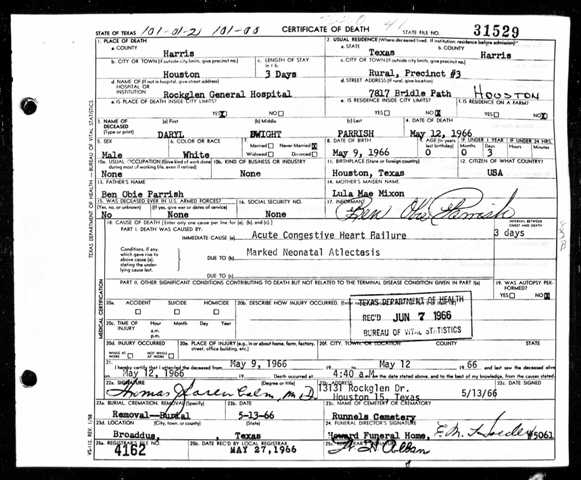 STATE OF TEXAS
CERTIFICATE OF DEATH
STATE FILE NO. 31529
1. PLACE OF DEATH
a. COUNTY
Harris
2. USUAL RESIDENCE (Where deceased lived. If institution: residence before admission)
a. STATE
Texas
b. COUNTY
Harris
b. CITY OR TOWN (If outside city limits, give precinct no.)
Houston
c. LENGTH OF STAY
3 Days
c. CITY OR TOWN (If outside city limits, give precinct no.)
Rural, Precinct #3
d. NAME OF (If not in hospital, give street address)
HOSPITAL OR
INSTITUTION
Rockglen General Hospital
d. STREET ADDRESS
7817 Bridle Path
HOUSTON
e. IS PLACE OF DEATH INSIDE CITY LIMITS?
YES X NO
e. IS RESIDENCE INSIDE CITY LIMITS?
YES NO X
f. IS RESIDENCE ON A FARM?
YES NO X
3. NAME OF DECEASED
(Type or print)
(a) First
DARYL
(b) Middle
DWIGHT
(c) Last
PARRISH
4. DATE OF DEATH
May 12, 1966
5. SEX
Male
6. COLOR OR RACE
White
7. Married Never Married X
Widowed Divorced
8. DATE OF BIRTH
May 9, 1966
9. AGE
0
IF UNDER 1 YEAR
0 3
IF UNDER 24 HRS.
10a. USUAL OCCUPATION (Give kind of work done during most of working life, even if retired)
None
10b. KIND OF BUSINESS OR INDUSTRY
None
11. BIRTHPLACE (State or foreign country)
Houston, Texas
12. CITIZEN OF WHAT COUNTRY?
USA
13. FATHER'S NAME
Ben Obie Parrish
14. MOTHER'S MAIDEN NAME
Lula Mae Mixon
15. WAS DECEASED EVER IN U.S. ARMED FORCES?
(Yes, no, or unknown)
(If yes, give war or dates of service)
No None
16. SOCIAL SECURITY NO.
None
17. INFORMANT
Ben Obie Parrish
18. CAUSE OF DEATH [Enter only one cause per line for (a), (b), and (c).]
INTERVAL BETWEEN ONSET AND DEATH
PART I. DEATH WAS CAUSED BY:
IMMEDIATE CAUSE (a)
Acute Congestive Heart Railure
3 days
Conditions, if any, which gave rise to above cause (a), stating the underlying cause last.
DUE TO (b)
Marked Neonatal Atlectasis
DUE TO (c)
PART II. OTHER SIGNIFICANT CONDITIONS CONTRIBUTING TO DEATH BUT NOT RELATED TO THE TERMINAL DISEASE CONDITION GIVEN IN PART I(a)
19. WAS AUTOPSY PERFORMED?
YES NO X
20a. ACCIDENT SUICIDE HOMICIDE
20b. DESCRIBE HOW INJURY OCCURRED.
TEXAS DEPARTMENT OF HEALTH
REC'D JUN 7 1966
BUREAU OF VITAL STATISTICS
20c. TIME OF INJURY
Hour Month Day Year
a.m.
p.m.
20d. INJURY OCCURRED
WHILE AT WORK NOT WHILE AT WORK
20e. PLACE OF INJURY (e.g., in or about home, farm, factory, street, office building, etc.)
20f. CITY, TOWN, OR LOCATION
COUNTY
STATE
21. I hereby certify that I attended the deceased from May 9, 1966 to May 12 1966 and last saw the deceased alive
on May 12, 1966 Death occurred at 4:40 a.m. on the date stated above, and to the best of my knowledge, from the causes stated.
22a. SIGNATURE
(Degree or title)
22b. ADDRESS
13131 Rockglen Dr.
Houston 15, Texas
22c. DATE SIGNED
5/13/66
23a. BURIAL, CREMATION, REMOVAL (Specify)
Removal-Burial
23b. DATE
5-13-66
23c. NAME OF CEMETERY OR CREMATORY
Runnels Cemetery
23d. LOCATION (City, town, or county) (State)
Broaddus, Texas
24. FUNERAL DIRECTOR'S SIGNATURE
Howard Funeral Home,
25a. REGISTRAR'S FILE NO.
4162
25b. DATE REC'D BY LOCAL REGISTRAR
MAY 27, 1966
TEXAS DEPARTMENT OF HEALTH — BUREAU OF VITAL STATISTICS
MEDICAL CERTIFICATION